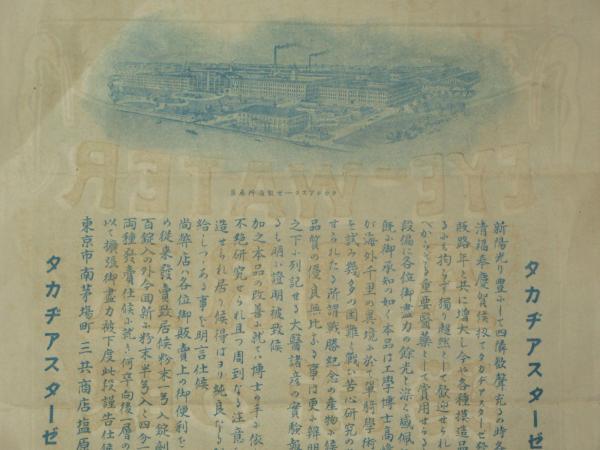 EYE-WATER
タカヂアスターゼ製造所全景
タカヂアスターゼ
新陽光り豊かにして四隣歓声充るの時各
清福奉慶賀候扨てタカヂアスターゼ発
販路年と共に増大し今や各種模造品
るにも拘らず獨り超然として歓迎せられ
べからざる重要醫薬として賞用せらる
段偏に各位御盡力の餘光と深く感佩
既に御承知の如く本品は工學博士高峰
が海外千里の異境に於て単騎學術
を試み幾多の困難と戰ひ苦心研究の
せられたる所謂戰勝紀念の産物に候
品質の優良無比なる事は更に辯明
之下に列記せる大醫諸彦の實驗報
るも明に證明被致候
加之本品の改善に就ては博士の手に依
不絶研究せられ且つ周到なる注意
造せられ居り候得ばヨリ純良なる
給しつゝある事を明言仕候
尚弊店は各位御販賣上の御便利を
め従来發賣致居候粉末一号入錠劑
百錠入の外今回新に粉末半号入と四分一
両種發賣仕候に就ては何卒向後一層の
以て擴張御盡力被下度此段謹告仕候
東京市南茅場町 三共商店塩原
タカヂアスターゼ